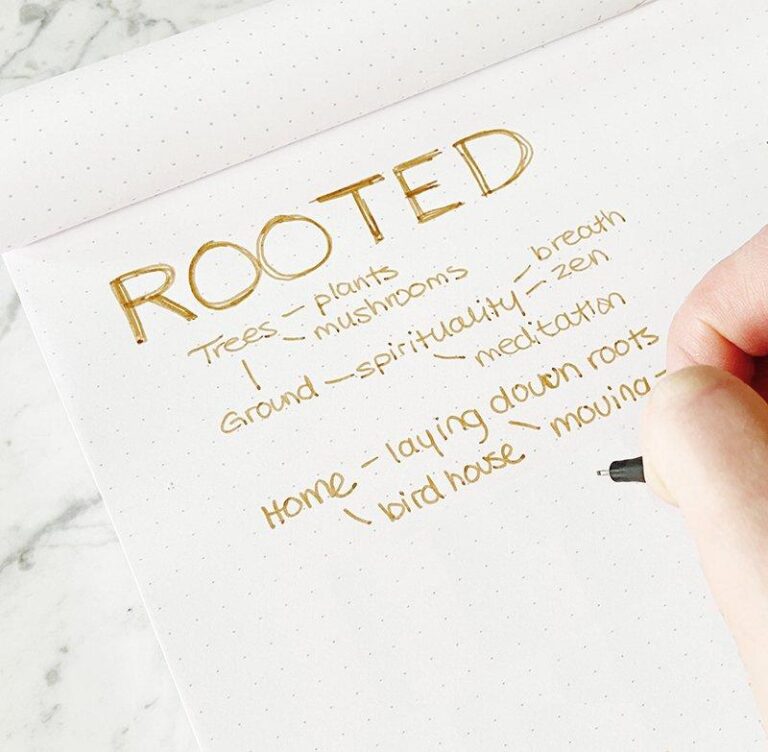 ROOTED
Trees – plants
– mushrooms
Ground – spirituality – breath
– zen
– meditation
Home – laying down roots
– bird house – moving –